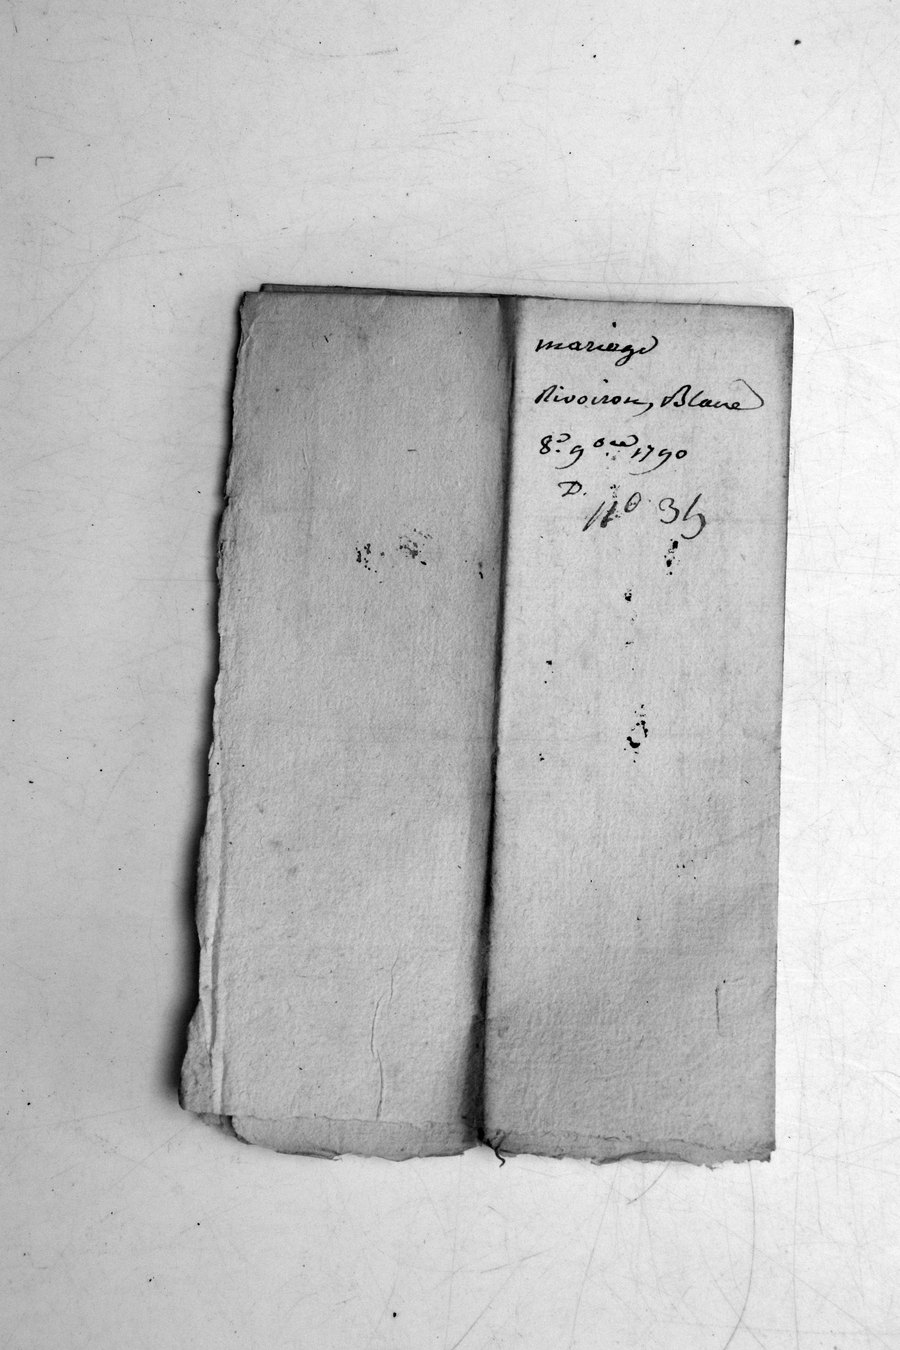 mariage
Rivoiron, Blanc
8.e 9bre 1790
D.
No 35